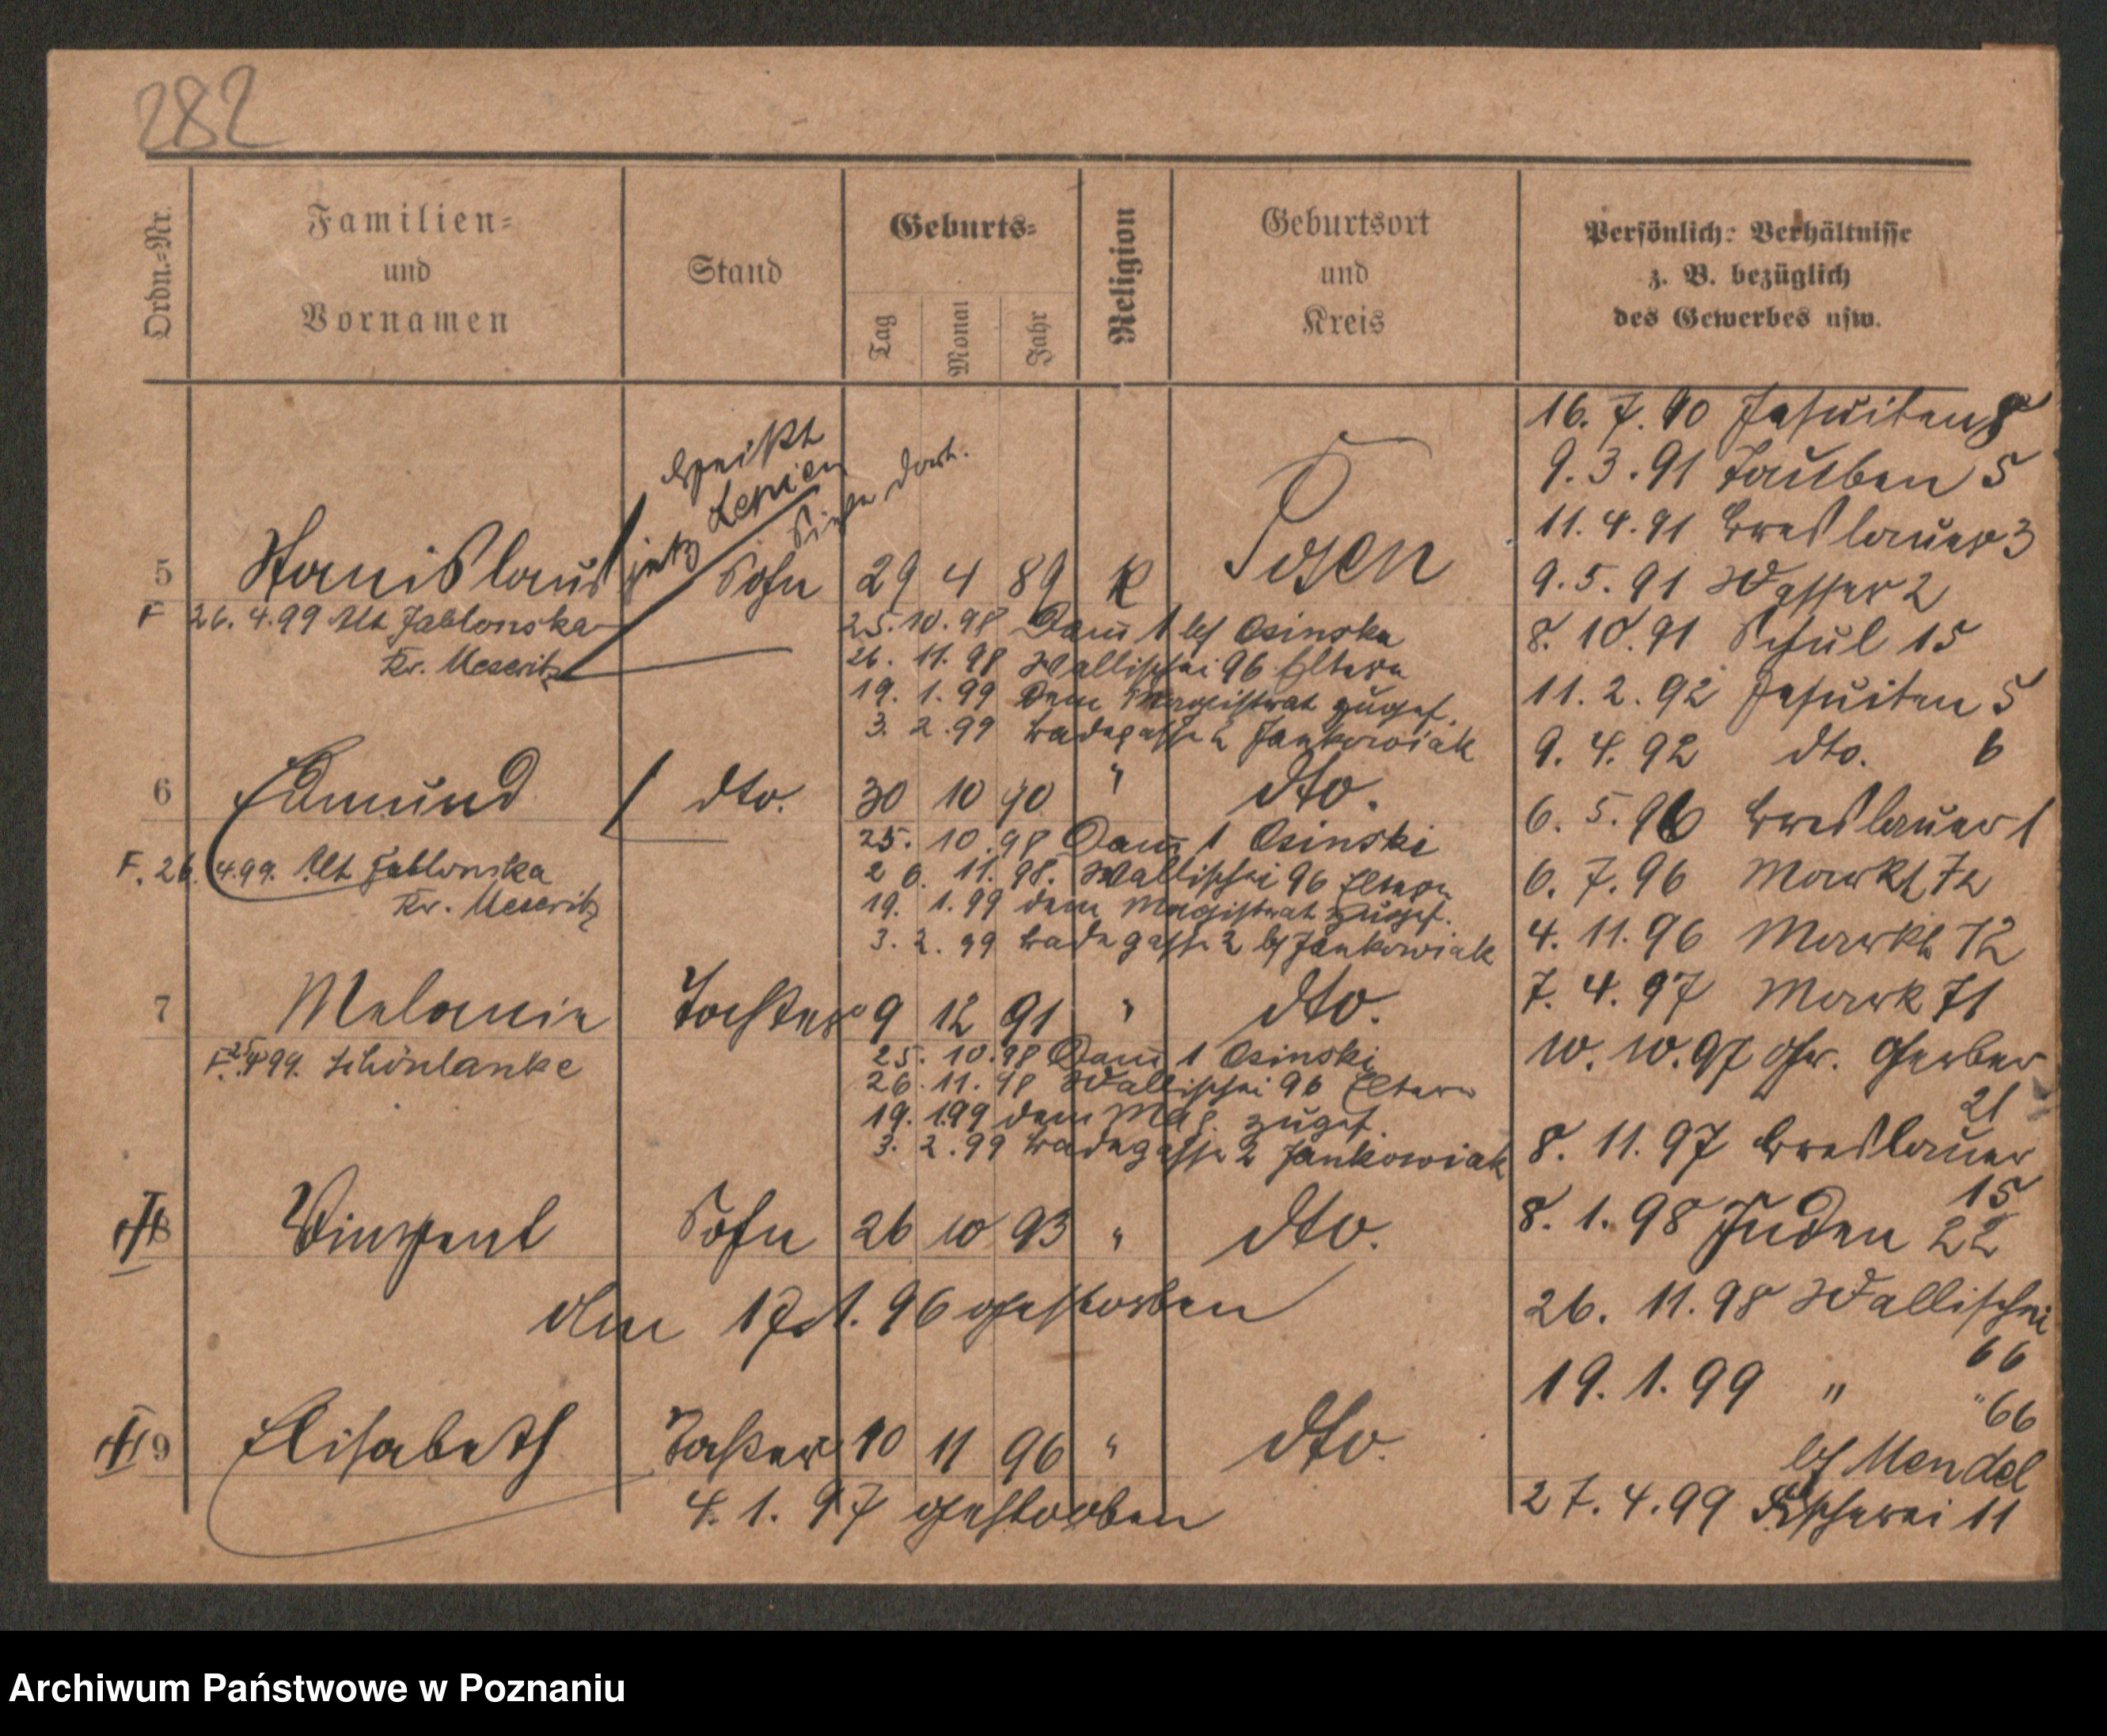 282
Ordn.=Nr.
Familien=
und
Vornamen
Stand
Geburts=
Tag
Monat
Jahr
Religion
Geburtsort
und
Kreis
Persönlich: Verhältnisse
z. B. bezüglich
des Gewerbes usw.
heißt
jetz Lepien
Siehe dort.
5 Stanislaus Sohn 29 4 89 K Posen
F 26.4.99 Alt Jablonska
Kr. Meseritz
25.10.98 Dom 1 bei Osinska
26. 11. 98 Wallischei 96 Eltern
19. 1. 99 Dem Magistrat zugef.
3. 2. 99 Badegasse 2 Jankowiak
6 Edmund dto. 30 10 90 " dto.
F. 26. 4.99. Alt Jablonska
Kr. Meseritz
25. 10. 98 Dom 1 Osinski
26. 11. 98. Wallischei 96 Eltern
19. 1. 99 dem Magistrat zugef.
3. 2. 99 Badegasse 2 bei Jankowiak
7 Melanie Tochter 9 12 91 " dto.
F. 25.4.99. Schönlanke
25. 10. 98 Dom 1 Osinski
26. 11. 98 Wallischei 96 Eltern
19. 1.99 dem Mag. zugef.
3. 2. 99 Badegasse 2 Jankowiak
8 Vinzent Sohn 26 10 93 " dto.
96 gestorben
9 Elisabeth Tochter 10 11 96 " dto.
4. 1. 97 gestorben
16. 7. 90 Jesuiten 8
9. 3. 91 Tauben 5
11. 4. 91 Breslauer 3
9. 5. 91 Wasser 2
8. 10. 91 Schul 15
11. 2. 92 Jesuiten 5
9. 4. 92 dto. 6
6. 5. 96 Breslauer 1
6. 7. 96 Markt 72
4. 11. 96 Markt 72
7. 4. 97 Mark 71
10. 10. 97 Gr. Gerber
21
8. 11. 97 Breslauer
15
8. 1. 98 Juden 22
26. 11. 98 Wallischei
66
19. 1. 99 " " 66
bei Mendel
27. 4. 99 Fischerei 11
Archiwum Państwowe w Poznaniu